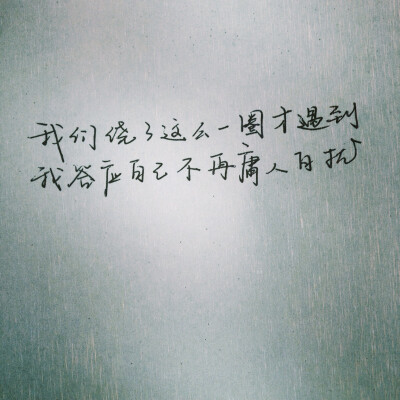 我们绕了这么一圈才遇到
我答应自己不再庸人自扰